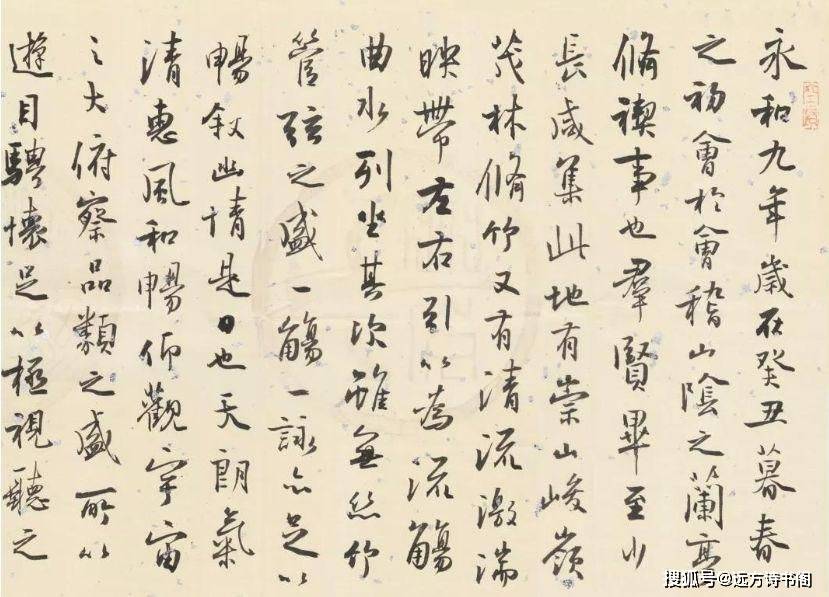 永和九年歲在癸丑暮春
之初會於會稽山陰之蘭亭
脩禊事也羣賢畢至少
長咸集此地有崇山峻嶺
茂林脩竹又有清流激湍
映帶左右引以為流觴
曲水列坐其次雖無絲竹
管弦之盛一觴一詠亦足以
暢叙幽情是日也天朗氣
清惠風和暢仰觀宇宙
之大俯察品類之盛所以
遊目騁懷足以極視聽之
搜狐号@远方诗书阁